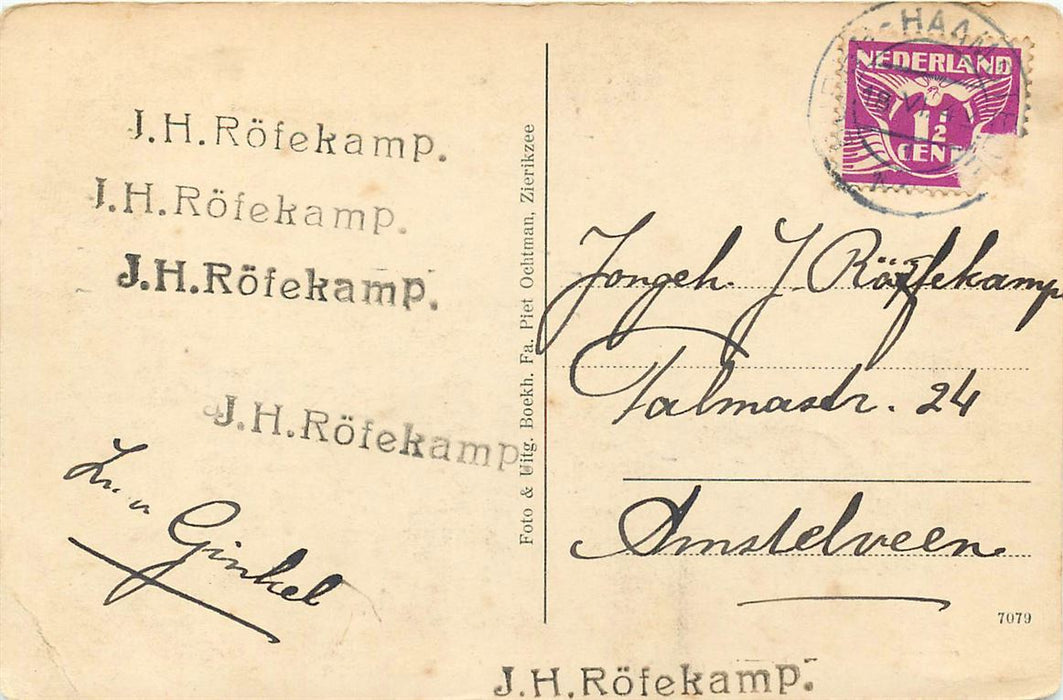 J.H.Röfekamp.
J.H.Röfekamp.
J.H.Röfekamp.
J.H.Röfekamp
Ginkel
Foto & Uitg. Boekh. Fa. Piet Ochtman, Zierikzee
-HAAM
NEDERLAND
1½
CENT
Jongeh. J. Röfekamp
Talmastr. 24
Amstelveen
7079
J.H.Röfekamp.